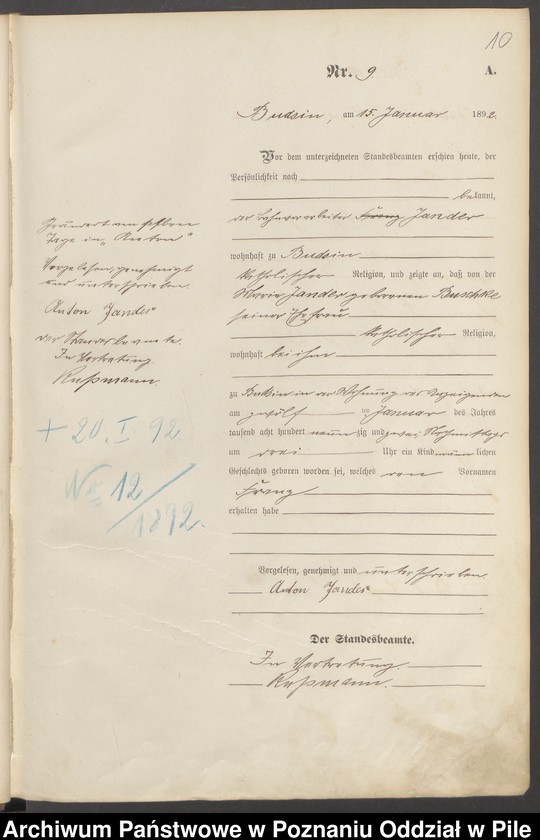 10
Nr. 9.
A.
Budsin, am 15. Januar 1892.
Vor dem unterzeichneten Standesbeamten erschien heute, der
Persönlichkeit nach
bekannt,
der Bahnarbeiter Franz Jander
wohnhaft zu Budsin
katholischer Religion, und zeigte an, daß von der
Maria Jander geborenen Buschke
seiner Ehefrau
katholischer Religion,
wohnhaft bei ihm
zu Budsin in der Wohnung des Anzeigenden
am zwölf ten Januar des Jahres
tausend acht hundert neunzig und zwei Nachmittags
um drei Uhr ein Kind männlichen
Geschlechts geboren worden sei, welches den Vornamen
Franz
erhalten habe
Vorgelesen, genehmigt und unterschrieben
Anton Jander
Der Standesbeamte.
In Vertretung
Rußmann.
Geändert am selben
Tage in „Anton"
Vorgelesen, genehmigt
und unterschrieben
Anton Jander
Der Standesbeamte.
In Vertretung
Rußmann.
+ 20. I 92
No 12/1892.
Archiwum Państwowe w Poznaniu Oddział w Pile